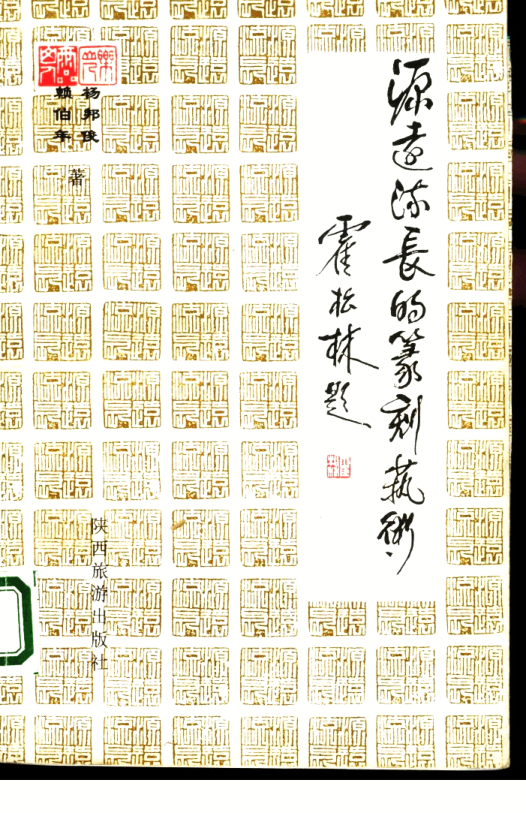 源远流長的篆刻藝術
霍松林题
杨邦俊
赖伯年
著
陕西旅游出版社